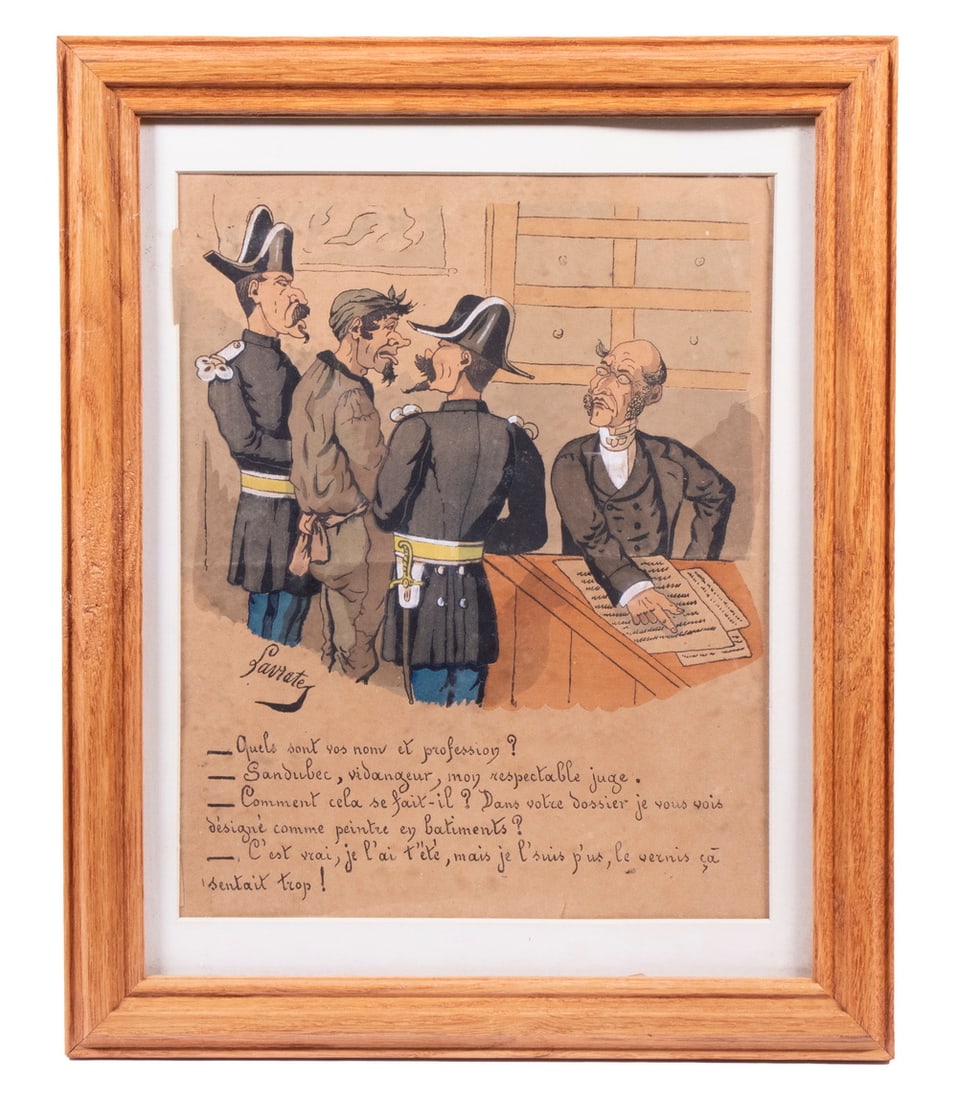 Lavrate
— Quels sont vos nom et profession ?
— Sandubec, vidangeur, mon respectable juge.
— Comment cela se fait-il ? Dans votre dossier je vous vois
désigné comme peintre en batiments ?
— C'est vrai, je l'ai t'été, mais je l'suis p'us, le vernis çà
sentait trop !